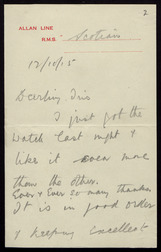 2
ALLAN LINE
R.M.S. Scotian
12/10/15
Darling Iris
I just got the
watch last night &
like it even more
than the other.
Ever & Ever so many thanks
It is in good order
& keeping excellent